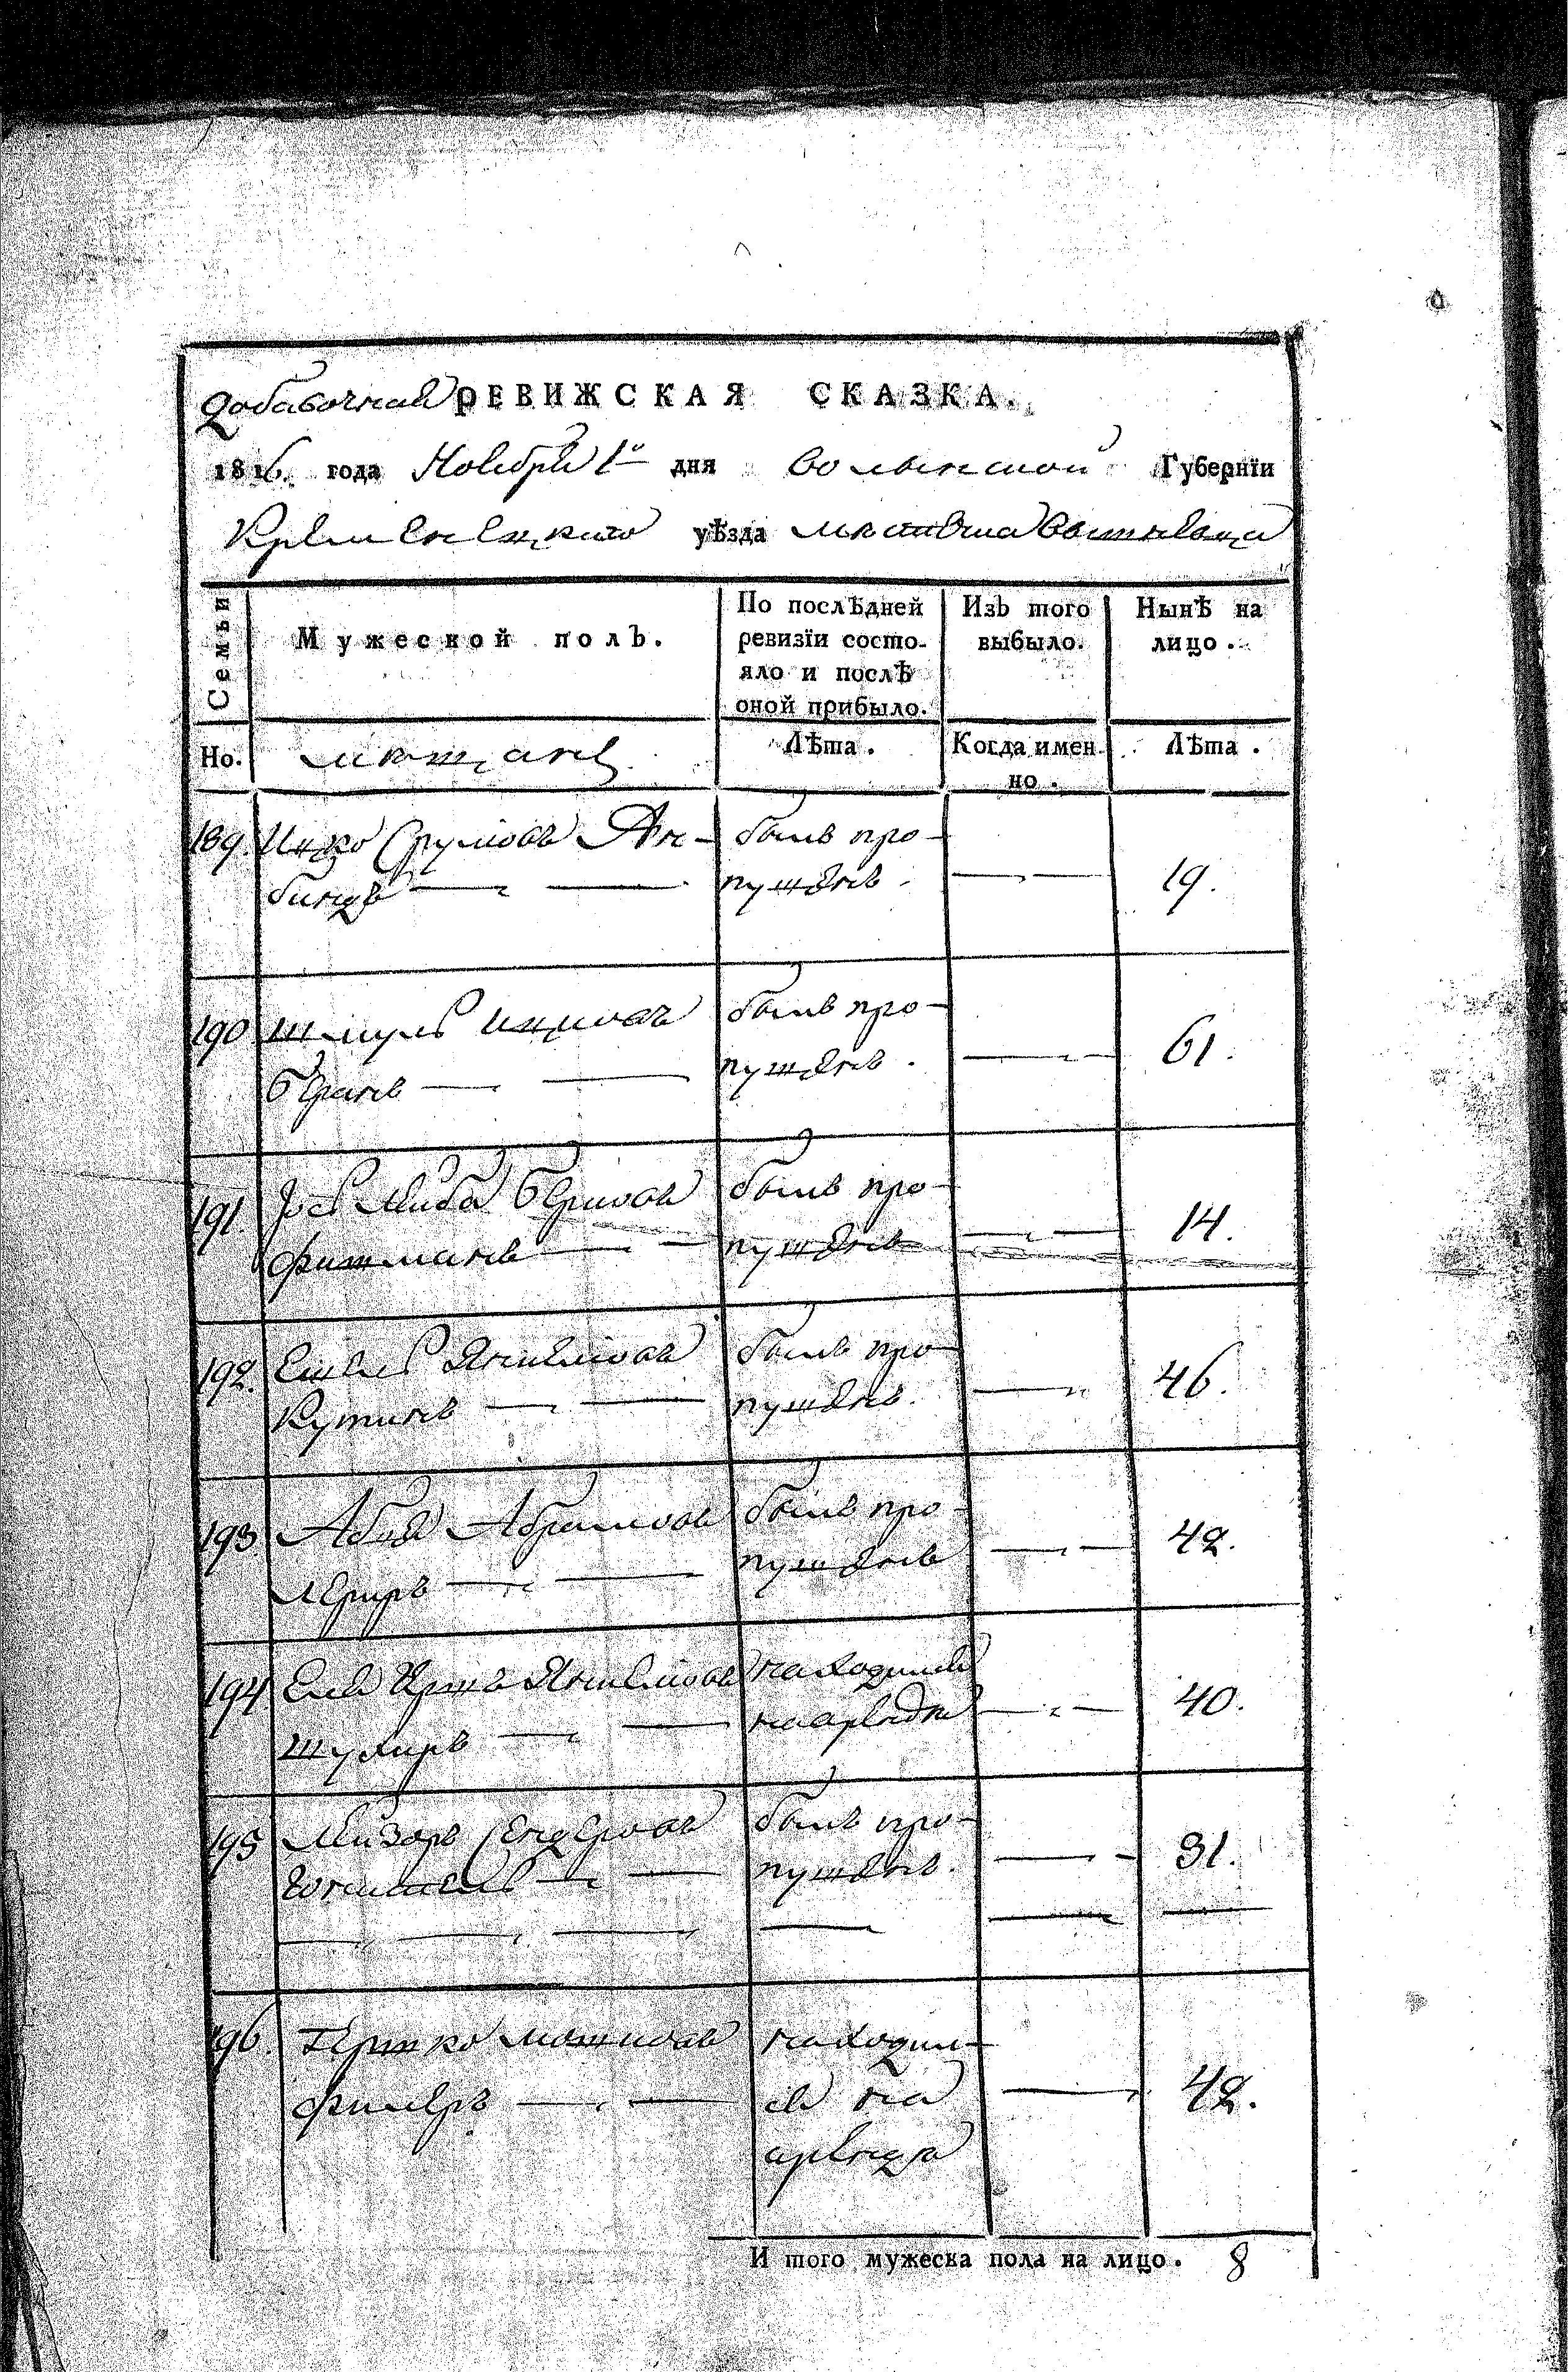 добавочная РЕВИЖСКАЯ СКАЗКА.
1816. года Ноября 1го дня волынской Губернїи
Кременецкаго уѣзда местечка
Семьи
Мужеской полъ.
По послѣдней ревизїи состо-
яло и послѣ
оной прибыло.
Изъ того
выбыло.
Нынѣ на
лицо.
Но.
мещане
Лѣта.
Когда имен-
но.
Лѣта.
189. Ицко Срулiовъ
былъ про-
пущенъ.
19.
190 Шмуль Ицковъ
былъ про-
пущенъ.
61.
191. Лейба Берковъ
Фишманъ
былъ про-
пущенъ
14.
192. Янкелiовъ
Кутинъ
былъ про-
пущенъ.
46.
193 Аба Абрамовъ
Лернръ
былъ про-
пущенъ
42.
194 Янкелiовъ
находился
на арендѣ
40.
195 Лейзоръ Сендеровъ
былъ про-
пущенъ.
31.
196. Гершко Мошковъ
Фишеръ
находил-
ся на
аренда
42.
И того мужеска пола на лицо. 8